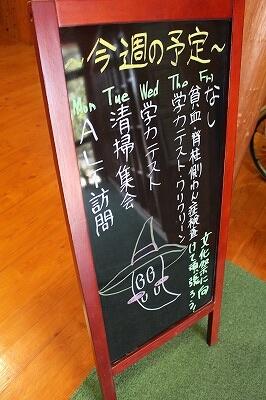 ~今週の予定~
Mon ALT訪問
Tue 清掃集会
Wed 学力テスト
The 学力テスト・クリクリ
Fri なし
貧血・脊柱側わん症検査
文化祭に向
けて頑張ろう!